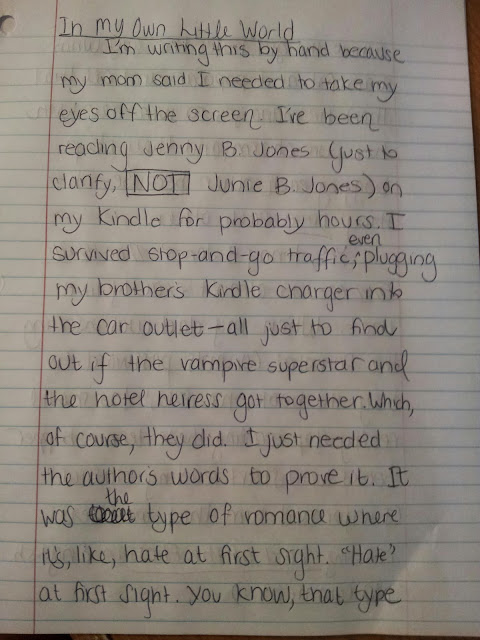 In My Own Little World
I'm writing this by hand because
my mom said I needed to take my
eyes off the screen. I've been
reading Jenny B. Jones (just to
clarify, NOT Junie B. Jones) on
my Kindle for probably hours. I
even
survived stop-and-go traffic, plugging
my brother's Kindle charger into
the car outlet—all just to find
out if the vampire superstar and
the hotel heiress got together. Which,
of course, they did. I just needed
the author's words to prove it. It
the
was type of romance where
it's, like, hate at first sight. "Hate"
at first sight. You know, that type